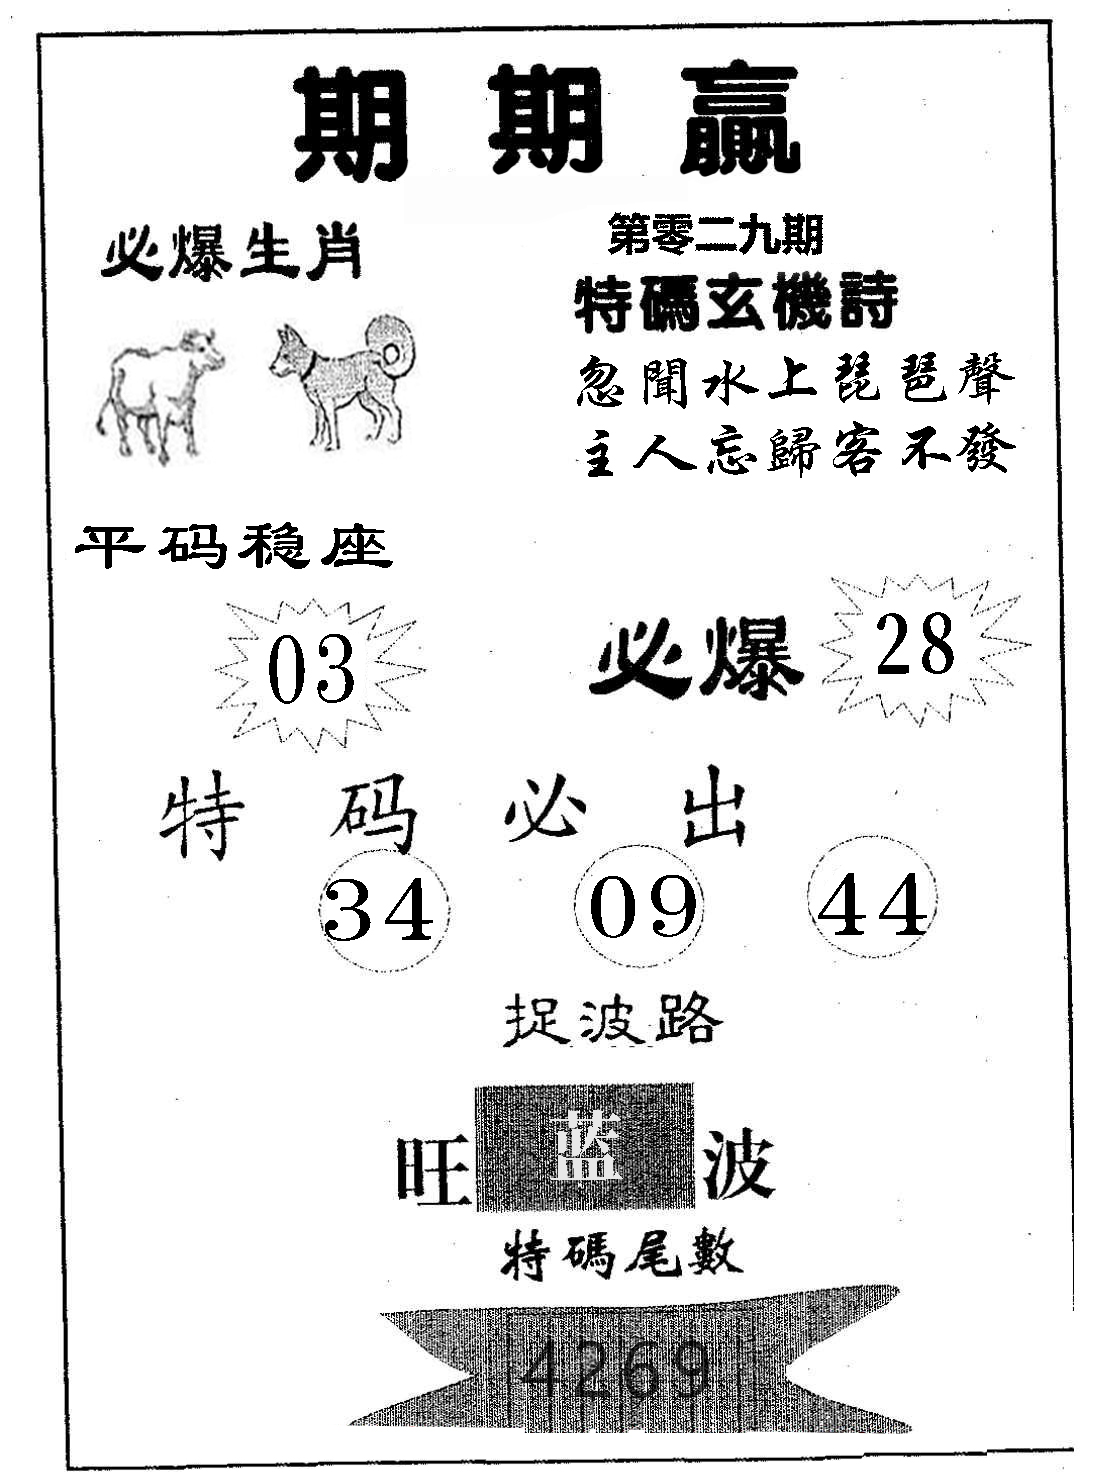 期期贏
必爆生肖
第零二九期
特碼玄機詩
忽聞水上琵琶聲
主人忘歸客不發
平码稳座
03
必爆 28
特码必出
34 09 44
捉波路
旺 蓝 波
特碼尾數
4269